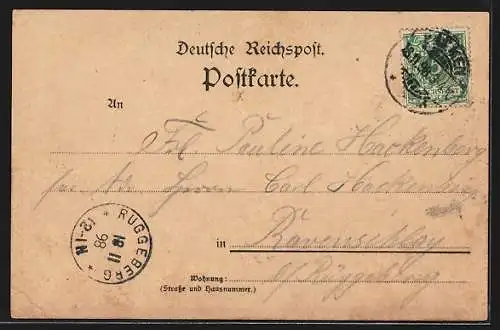 Deutsche Reichspost.
Postkarte.
An
Frl. Pauline Hackenberg
Herrn Carl Hackenberg
in Ravenschlag
b/Rüggeberg
Wohnung:
(Straße und Hausnummer.)
* RÜGGEBERG *
18 11 98
12-1N